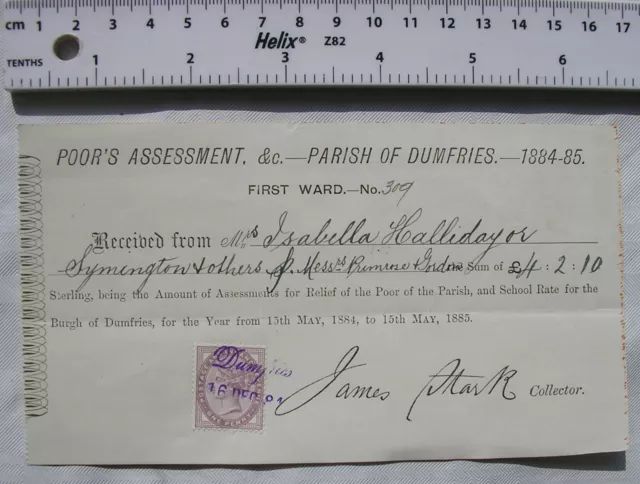 cm 1 2 3 4 5 6 7 8 9 10 11 12 13 14 15 16 17
Helix® Z82
TENTHS 1 2 3 4 5 6
POOR'S ASSESSMENT, &c.—PARISH OF DUMFRIES.—1884-85.
FIRST WARD.—No. 309
Received from Mrs Isabella Halliday or
Symington & others p. Messrs Primrose & Gordon the Sum of £4 : 2 : 10
Sterling, being the Amount of Assessments for Relief of the Poor of the Parish, and School Rate for the
Burgh of Dumfries, for the Year from 15th MAY, 1884, to 15th MAY, 1885.
Dumfries
16 DEC 84
James Stark Collector.